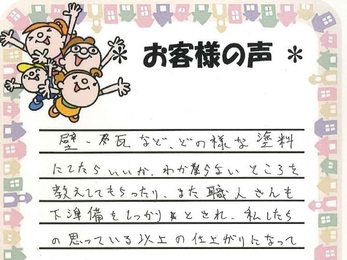 ＊ お客様の声 ＊
壁、瓦など、どの様な塗料
にしたらいいか、わからないところを
教えてもらったり、また職人さんも
下準備をしっかりとされ、私したち
の思っている以上の仕上がりになって